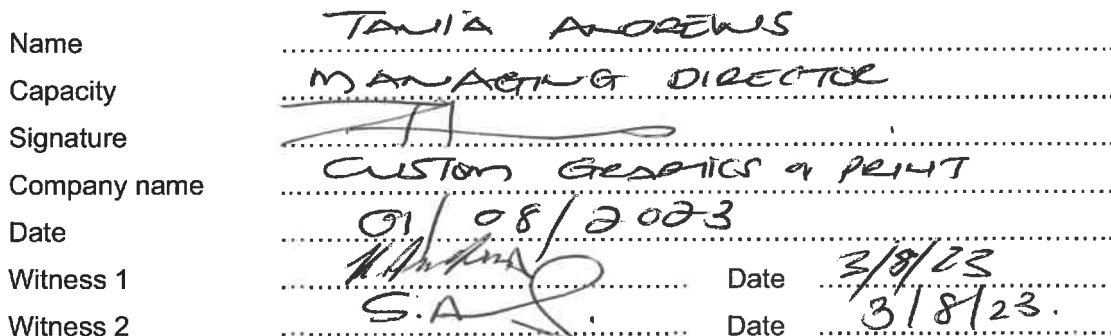 Name TANIA ANDREWS
Capacity MANAGING DIRECTOR
Signature
Company name CUSTOM GRAPHICS & PRINT
Date 01/08/2023
Witness 1 Date 3/8/23
Witness 2 S.A Date 3/8/23.